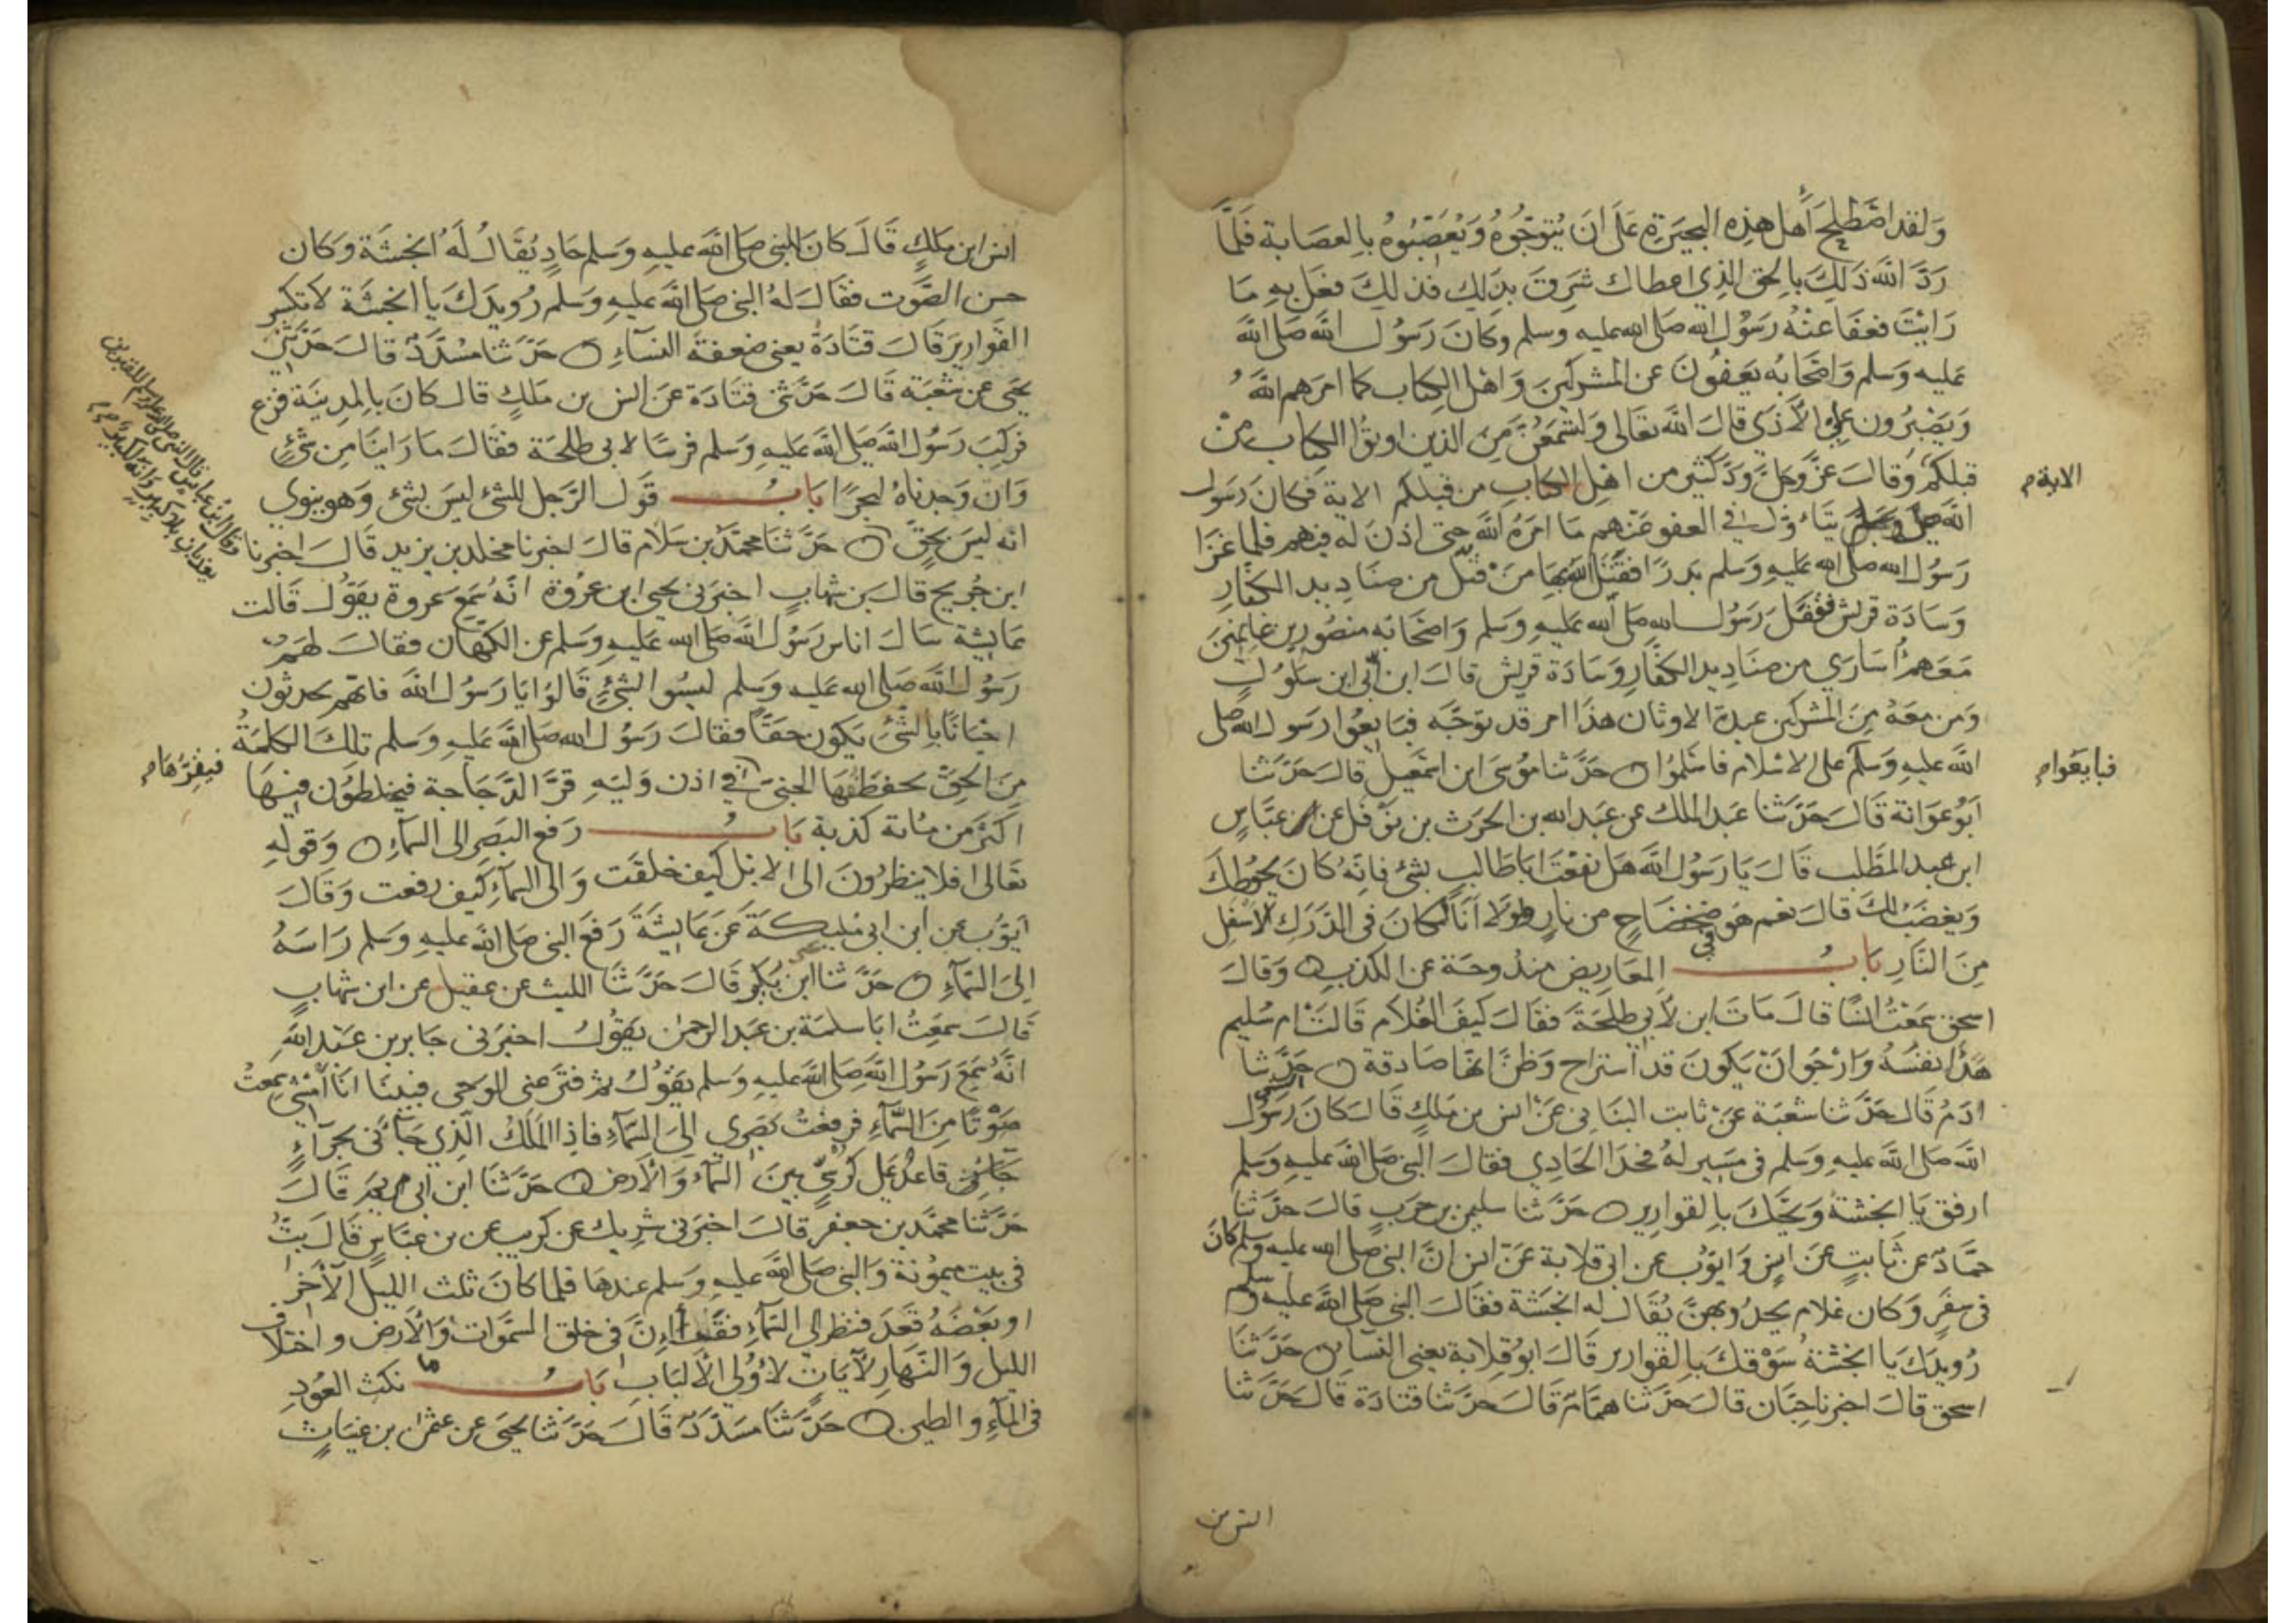 ولقد اصطلح أهل هذه البحيرة على ان يتوجوه ويعصبوه بالعصابة فلما
رد الله ذلك بالحق الذي اعطاك شرق بذلك فذلك فعل به ما
رايت فعفا عنه رسول الله صلى الله عليه وسلم وكان رسول الله صلى الله
عليه وسلم واصحابه يعفون عن المشركين واهل الكتاب كما امرهم الله
ويصبرون على الأذى قال الله تعالى ولتسمعن من الذين اوتوا الكتاب من
قبلكم وقال عز وجل ود كثير من اهل الكتاب من قبلكم الاية فكان رسول
الاية م
الله صلى وسلم يتاول في العفو عنهم ما امره الله حتى اذن له فيهم فلما غزا
رسول الله صلى الله عليه وسلم بدرا فقتل الله بها من قتل من صناديد الكفار
وسادة قريش فقفل رسول الله صلى الله عليه وسلم واصحابه منصورين غانمين
معهم أسارى من صناديد الكفار وسادة قريش قال ابن أبي ابن سلول
ومن معه من المشركين عبدة الاوثان هذا امر قد توجه فبايعوا رسول الله صلى
الله عليه وسلم على الاسلام فاسلموا حدثنا موسى ابن اسمعيل قال حدثنا
فبايعوا م
ابو عوانة قال حدثنا عبد الملك عن عبد الله بن الحرث بن نوفل عن عباس
ابن عبد المطلب قال يا رسول الله هل نفعت ابا طالب بشئ فانه كان يحوطك
ويغضب لك قال نعم هو في ضحضاح من نار ولولا أنا لكان في الدرك الاسفل
من النار باب المعاريض مندوحة عن الكذب وقال
اسحق سمعت انسا قال مات ابن لأبي طلحة فقال كيف الغلام قالت ام سليم
هدأ نفسه وارجو ان يكون قد استراح وظن انها صادقة حدثنا
ادم قال حدثنا شعبة عن ثابت البناني عن انس بن ملك قال كان رسول
الله صلى الله عليه وسلم في مسير له فحدا الحادي فقال النبي صلى الله عليه وسلم
ارفق يا انجشة ويحك بالقوارير حدثنا سليمن بن حرب قال حدثنا
حماد عن ثابت عن انس وايوب عن ابي قلابة عن انس ان النبي صلى الله عليه وسلم كان
في سفر وكان غلام يحدو بهن يقال له انجشة فقال النبي صلى الله عليه وسلم
رويدك يا انجشة سوقك بالقوارير قال ابو قلابة يعني النسا حدثنا
اسحق قال اخبرنا حبان قال حدثنا همام قال حدثنا قتادة قال حدثنا
انس بن
انس ابن ملك قال كان للنبي صلى الله عليه وسلم حاد يقال له انجشة وكان
حسن الصوت فقال له النبي صلى الله عليه وسلم رويدك يا انجشة لا تكسر
القوارير قال قتادة يعني ضعفة النساء حدثنا مسدد قال حدثني
يحيى عن شعبة قال حدثني قتادة عن انس بن ملك قال كان بالمدينة فزع
فركب رسول الله صلى الله عليه وسلم فرسا لابي طلحة فقال ما راينا من شئ
وان وجدناه لبحرا باب قول الرجل للشئ ليس بشئ وهو ينوي
انه ليس بحق حدثنا محمد بن سلام قال اخبرنا مخلد بن يزيد قال اخبرنا
وقال ابن عباس قال النبي صلى الله عليه وسلم للقبرين
يعذبان بلا كبير وانه لكبير م
ابن جريج قال بن شهاب اخبرني يحيى ابن عروة انه سمع عروة يقول قالت
عايشة سال اناس رسول الله صلى الله عليه وسلم عن الكهان فقال لهم
رسول الله صلى الله عليه وسلم ليسوا بشئ قالوا يا رسول الله فانهم يحدثون
احيانا بالشئ يكون حقا فقال رسول الله صلى الله عليه وسلم تلك الكلمة
من الحق يحفظها الجني في اذن وليه قر الدجاجة فيخلطون فيها
فيقرها م
اكثر من مائة كذبة باب رفع البصر الى السماء وقوله
تعالى افلا ينظرون الى الابل كيف خلقت والى السماء كيف رفعت وقال
ايوب عن ابن ابي مليكة عن عايشة رفع النبي صلى الله عليه وسلم راسه
الى السماء حدثنا ابن بكير قال حدثنا الليث عن عقيل عن ابن شهاب
قال سمعت ابا سلمة بن عبد الرحمن يقول اخبرني جابر بن عبد الله
انه سمع رسول الله صلى الله عليه وسلم يقول ثم فتر عني الوحي فبينا انا أمشي سمعت
صوتا من السماء فرفعت بصري الى السماء فاذا الملك الذي جائني بحراء
جائني قاعد على كرسي بين السماء والأرض حدثنا ابن ابي مريم قال
حدثنا محمد بن جعفر قال اخبرني شريك عن كريب عن بن عباس قال بت
في بيت ميمونة والنبي صلى الله عليه وسلم عندها فلما كان ثلث الليل الآخر
او بعضه قعد فنظر الى السماء فقرأ إن في خلق السموات والأرض واختلاف
الليل والنهار لآيات لأولي الألباب باب ما نكث العود
في الماء والطين حدثنا مسدد قال حدثنا يحيى عن عثمن بن غياث